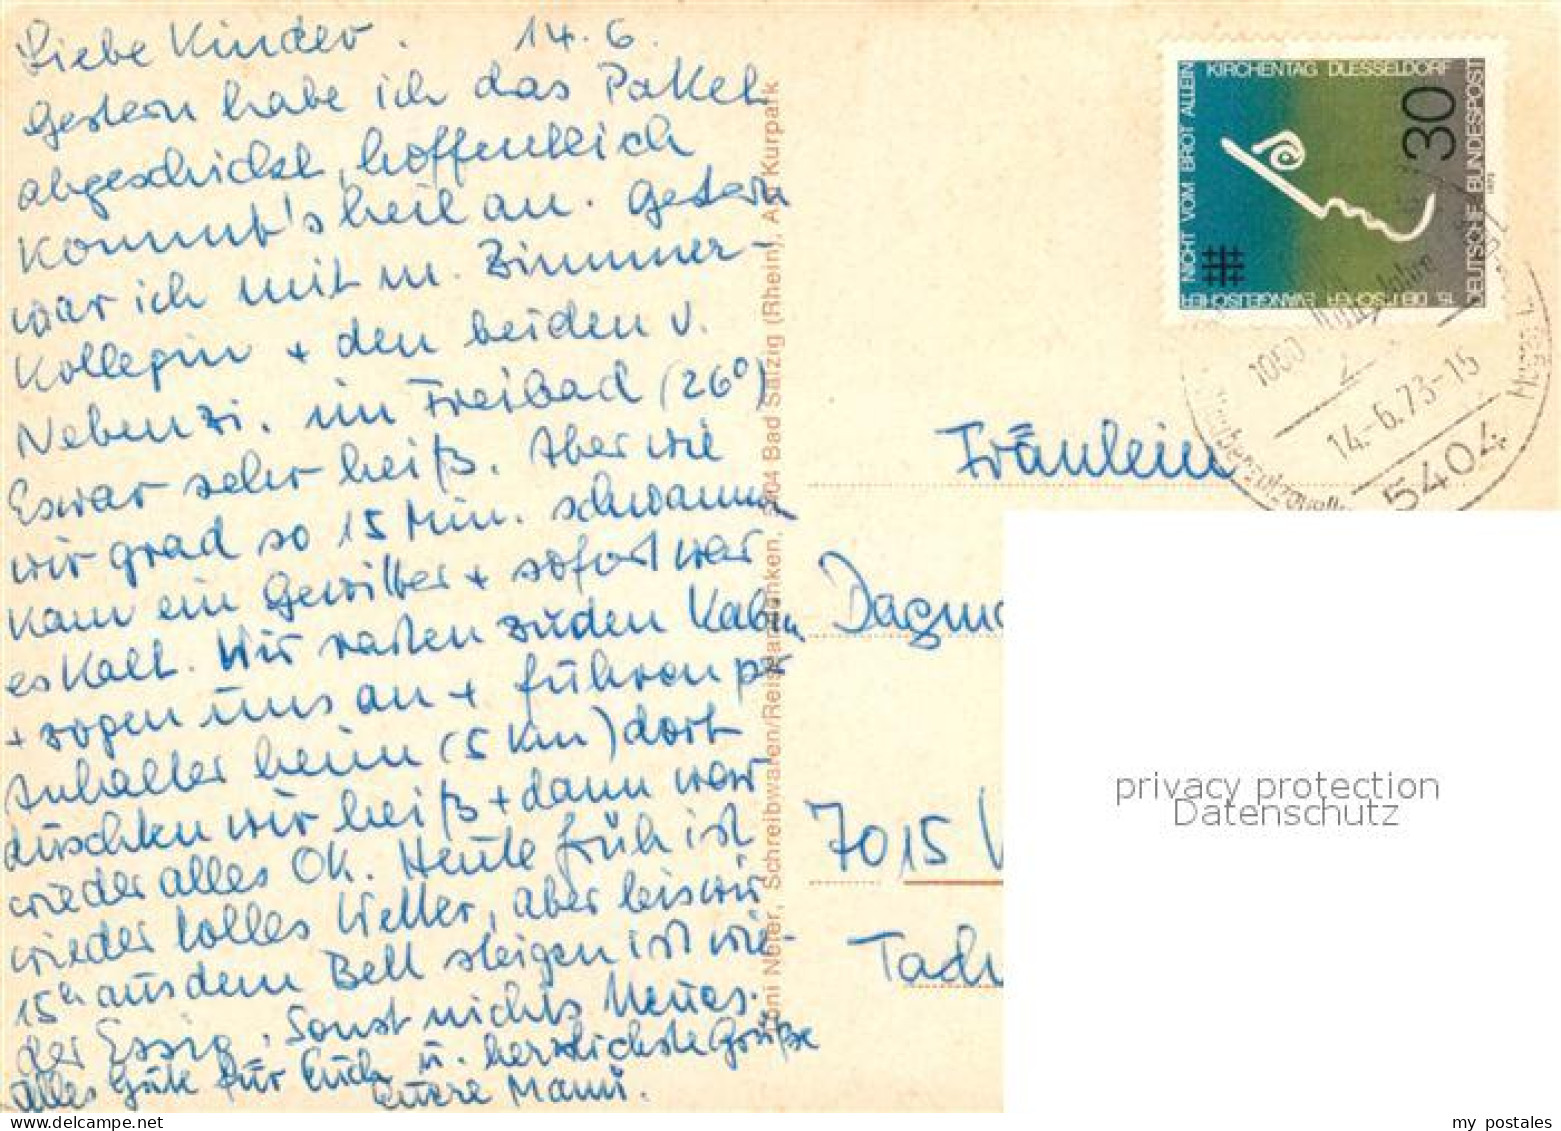 Liebe Kinder. 14.6.
Gestern habe ich das Paket
abgeschickt, hoffentlich
kommt's heil an. Gestern
war ich mit m. Zimmer-
kollegin + den beiden v.
Nebenzi. im Freibad (26°)
Es war sehr heiß. Aber wie
wir grad so 15 Min. schwammen
kam ein Gewitter + sofort war
es kalt. Wir rasten zu den Kabin
+ zogen uns an + führen per
Anhalter heim (5 km) dort
duschten wir heiß + dann war
wieder alles OK. Heute früh ist
wieder tolles Wetter, aber bis wir
15h aus dem Bett steigen ist wie-
der Essig. Sonst nichts Neues.
Alles Gute für Euch u. herzlichste Grüße
Eure Mami.
Toni Neier, Schreibwaren/Reiseandenken, 5404 Bad Salzig (Rhein), Am Kurpark
NICHT VOM BROT ALLEIN
KIRCHENTAG DUESSELDORF
15. DEUTSCHER EVANGELISCHER
DEUTSCHE BUNDESPOST
30
1973
1050 Jahre
14.-6.73-15
5404
Fräulein
Dagma
7015
Tach
privacy protection
Datenschutz
my postales